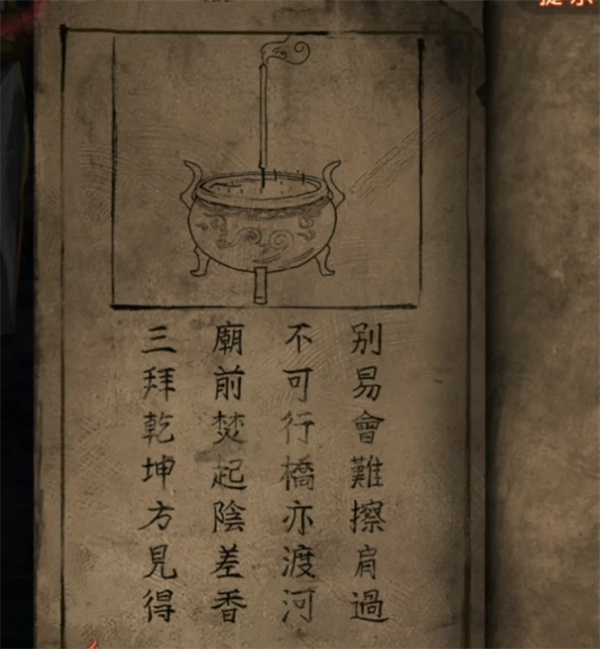 提示
別易會難擦肩過
不可行橋亦渡河
廟前焚起陰差香
三拜乾坤方見得